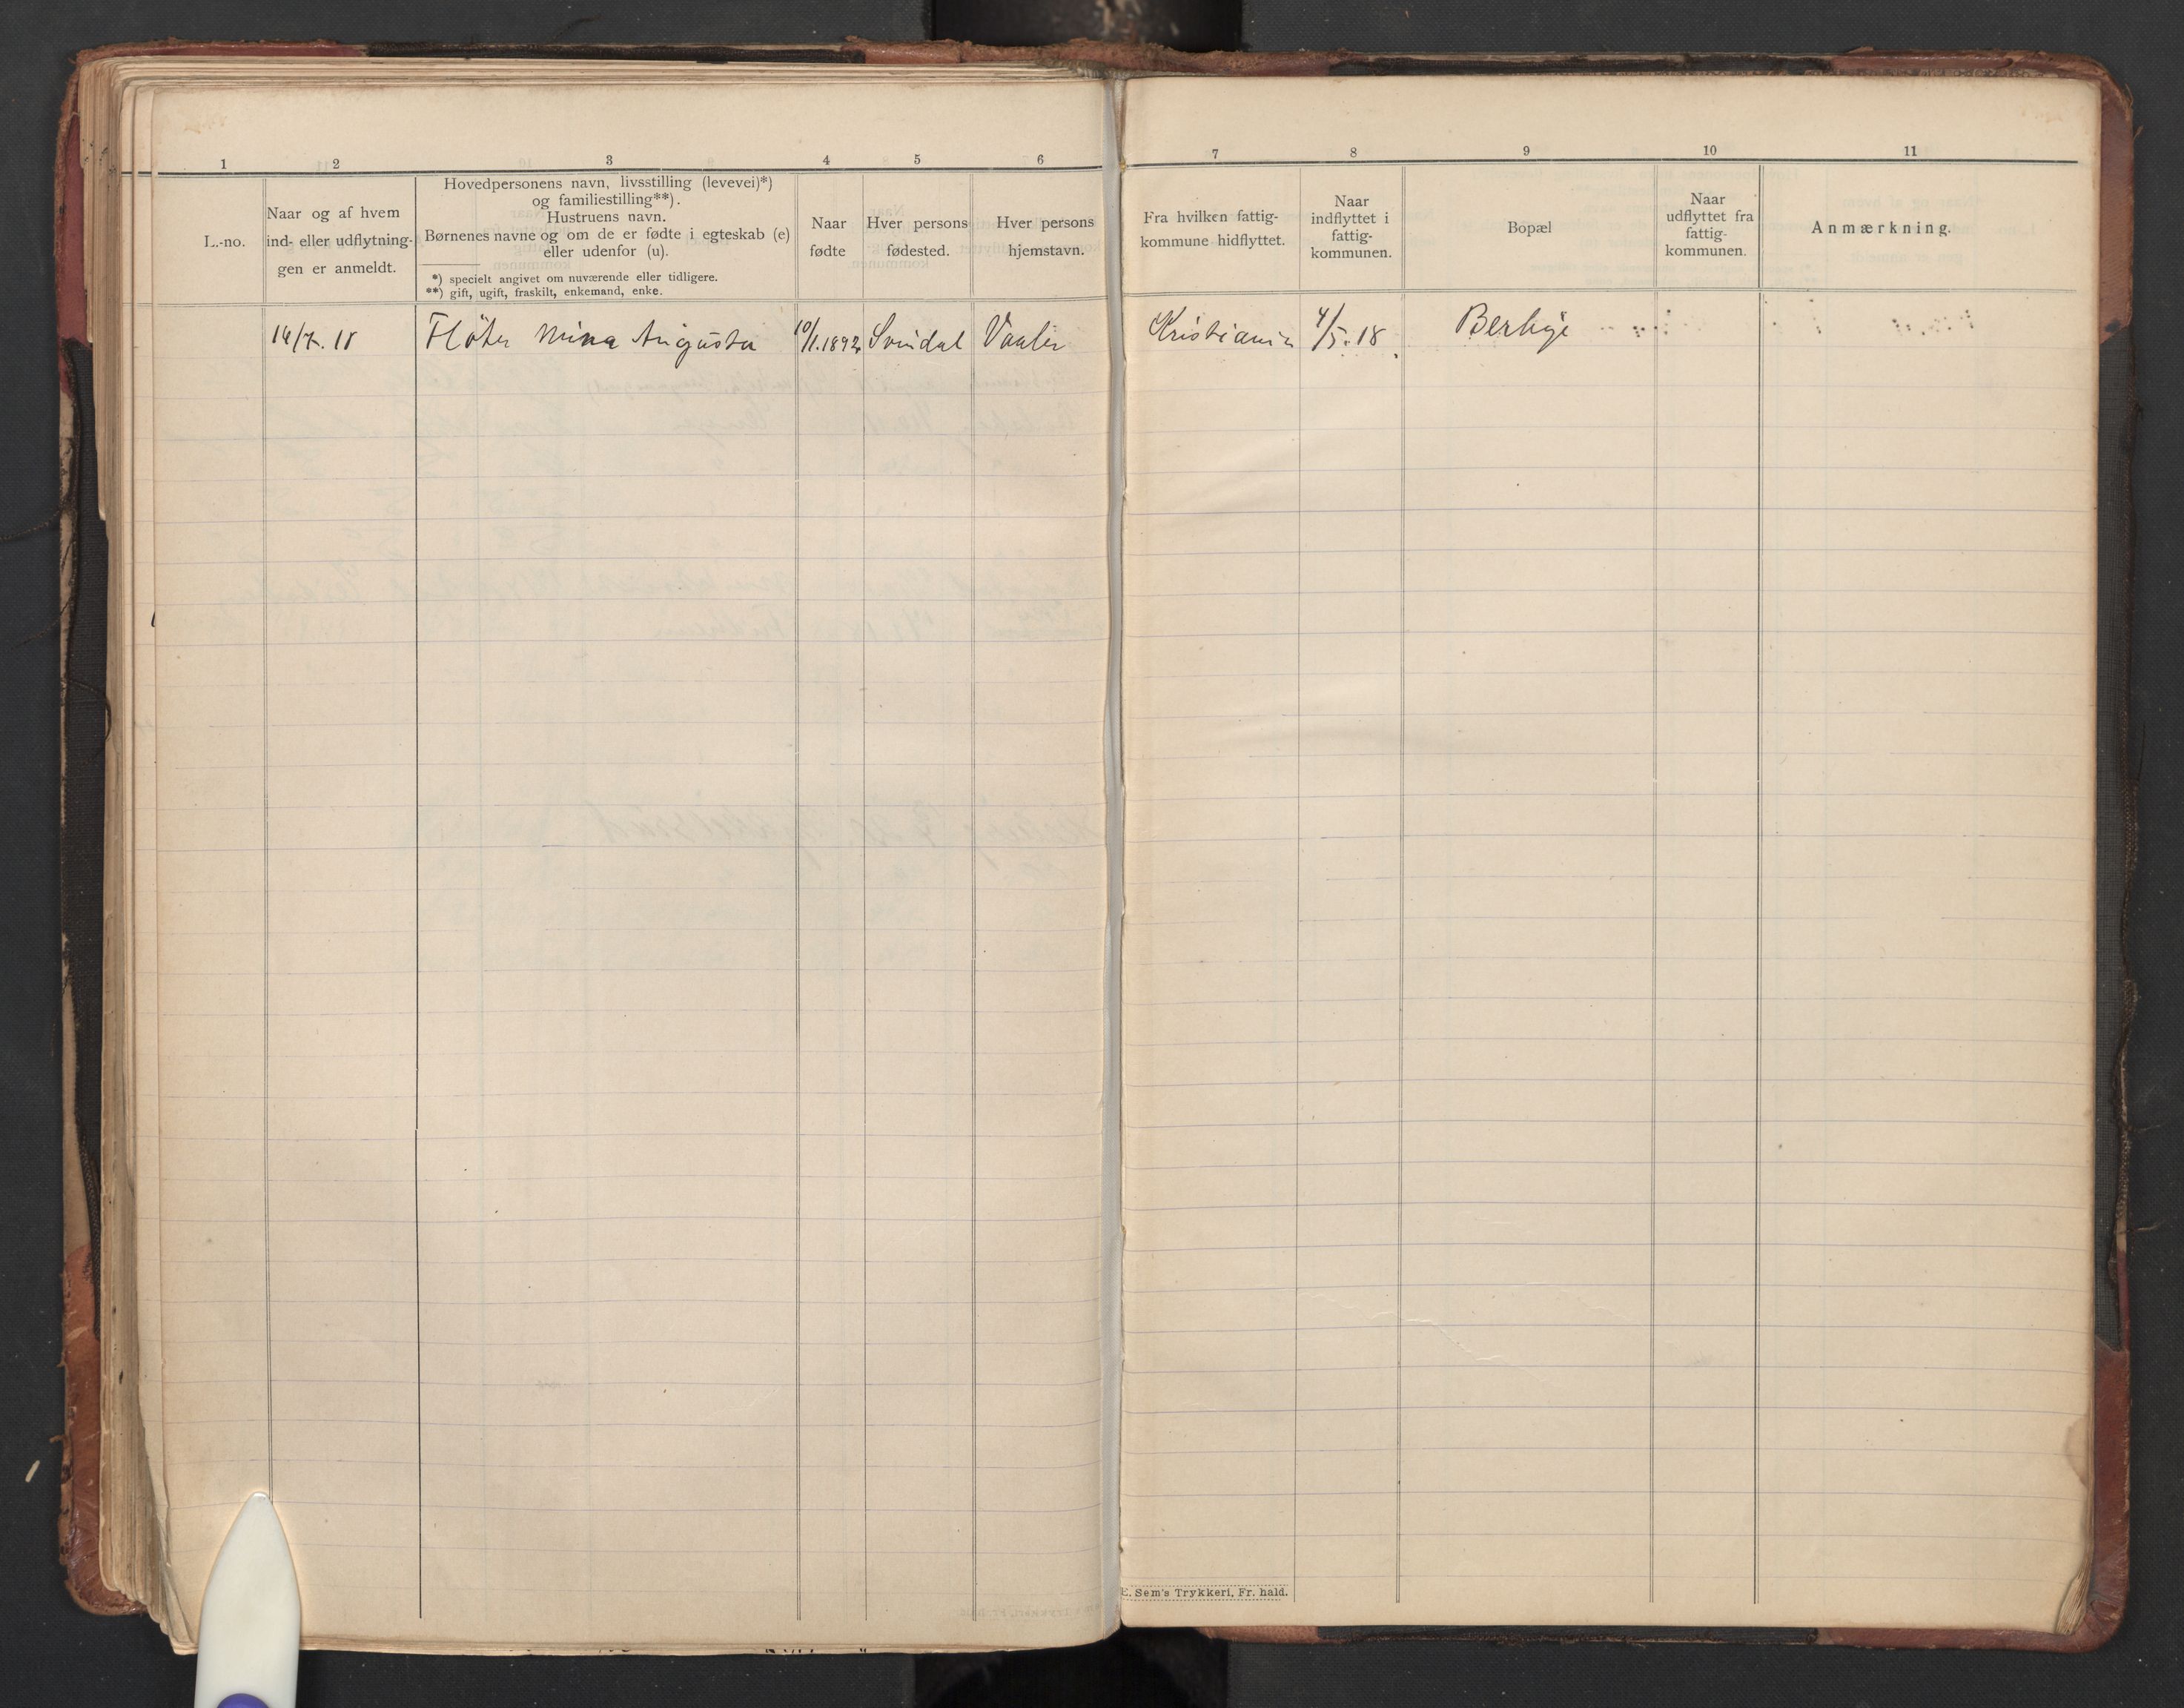 1 2 3 4 5 6 7 8 9 10 11
L.-no.
Naar og af hvem
ind- eller udflytnin-
gen er anmeldt.
Hovedpersonens navn, livsstilling (levevei)*)
og familiestilling**).
Hustruens navn.
Børnenes navne og om de er fødte i egteskab (e)
eller udenfor (u).
*) specielt angivet om nuværende eller tidligere.
**) gift, ugift, fraskilt, enkemand, enke.
Naar
fødte
Hver persons
fødested.
Hver persons
hjemstavn.
Fra hvilken fattig-
kommune hidflyttet.
Naar
indflyttet i
fattig-
kommunen.
Bopæl
Naar
udflyttet fra
fattig-
kommunen.
Anmærkning.
14/7. 18 Flöter Mina Augusta 10/1.1892 Svindal Vaaler Kristiania 4/5.18 Berbye
E. Sem's Trykkeri, Fr. hald.